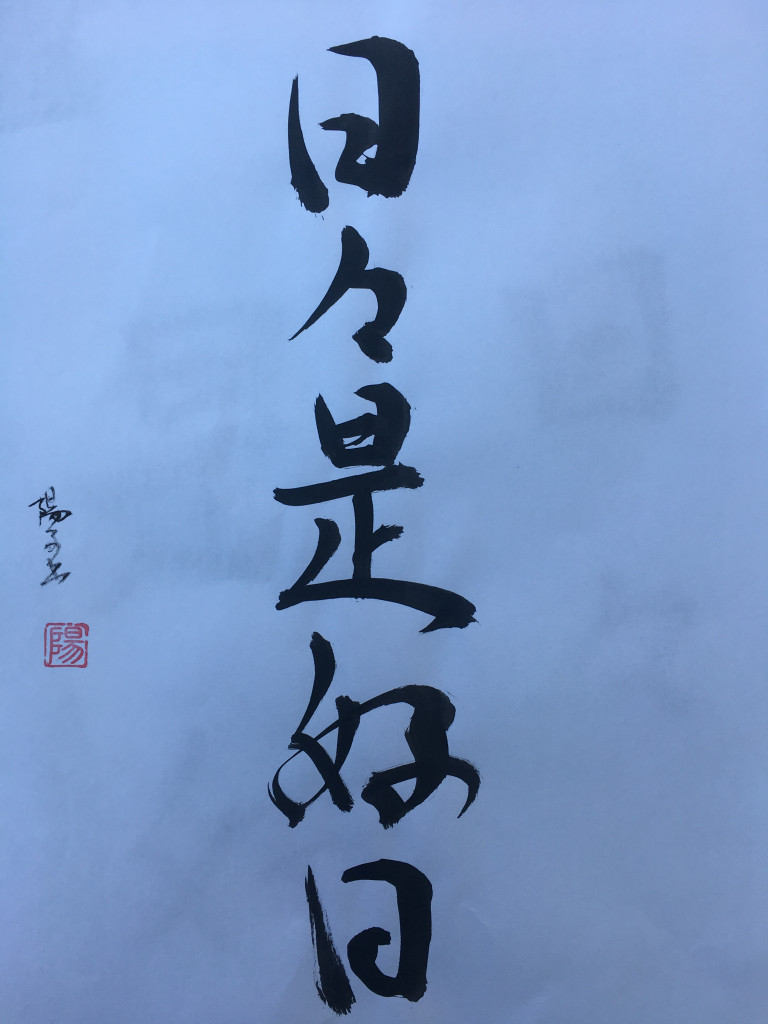 日々是好日
陽子書
陽